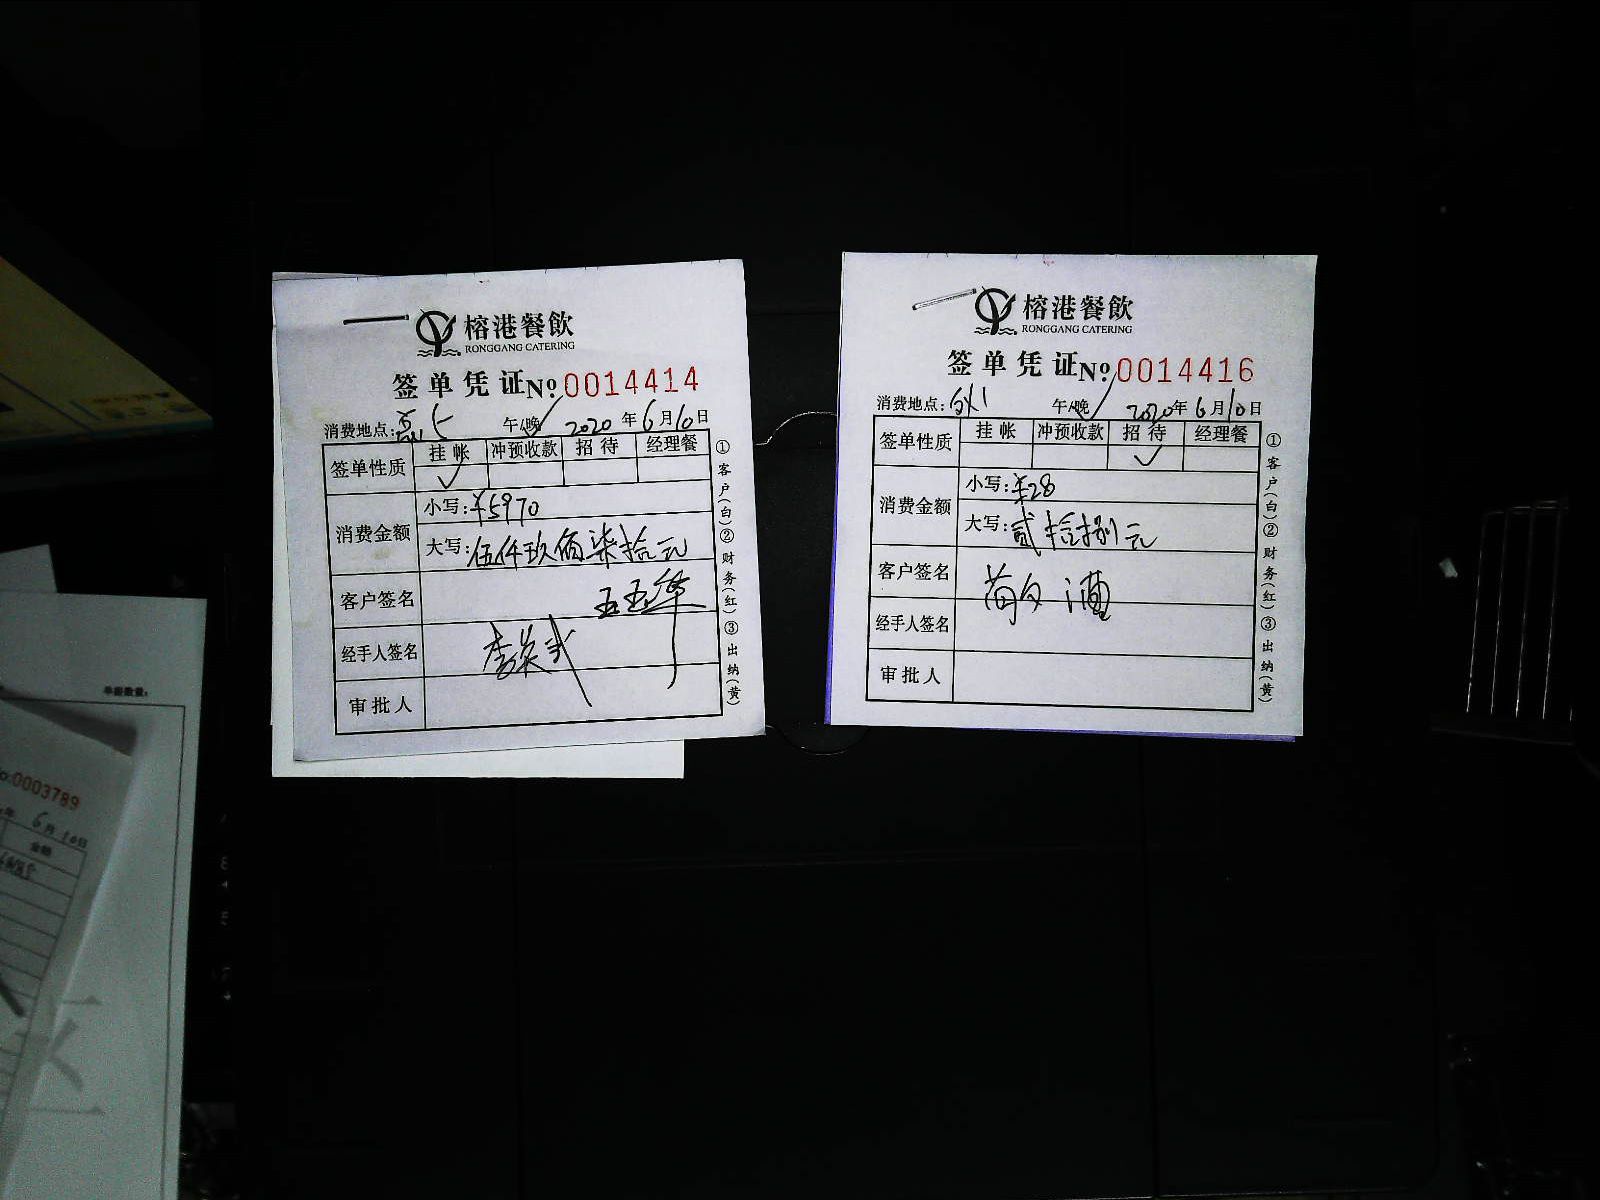 榕港餐飲
RONGGANG CATERING
签单凭证 No 0014414
消费地点: 午/晚 2020年6月10日
签单性质 挂帐 冲预收款 招待 经理餐
✓
消费金额
小写:¥5970
大写:伍仟玖佰柒拾元
客户签名
经手人签名
审批人
①客户(白)②财务(红)③出纳(黄)
榕港餐飲
RONGGANG CATERING
签单凭证 No 0014416
消费地点: 午/晚 2020年6月10日
签单性质 挂帐 冲预收款 招待 经理餐
✓
消费金额
小写:¥28
大写:贰拾捌元
客户签名
经手人签名
审批人
①客户(白)②财务(红)③出纳(黄)
No:0003789
年6月10日
金额